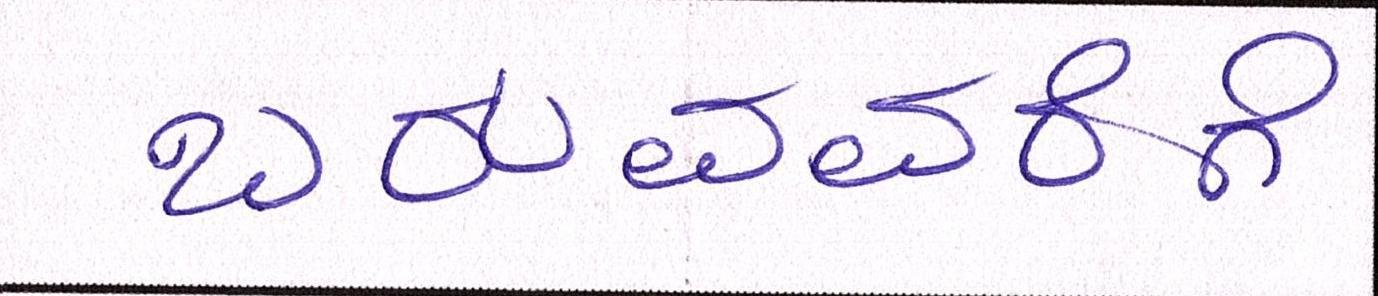 ಬರುವವರಿಗೆ